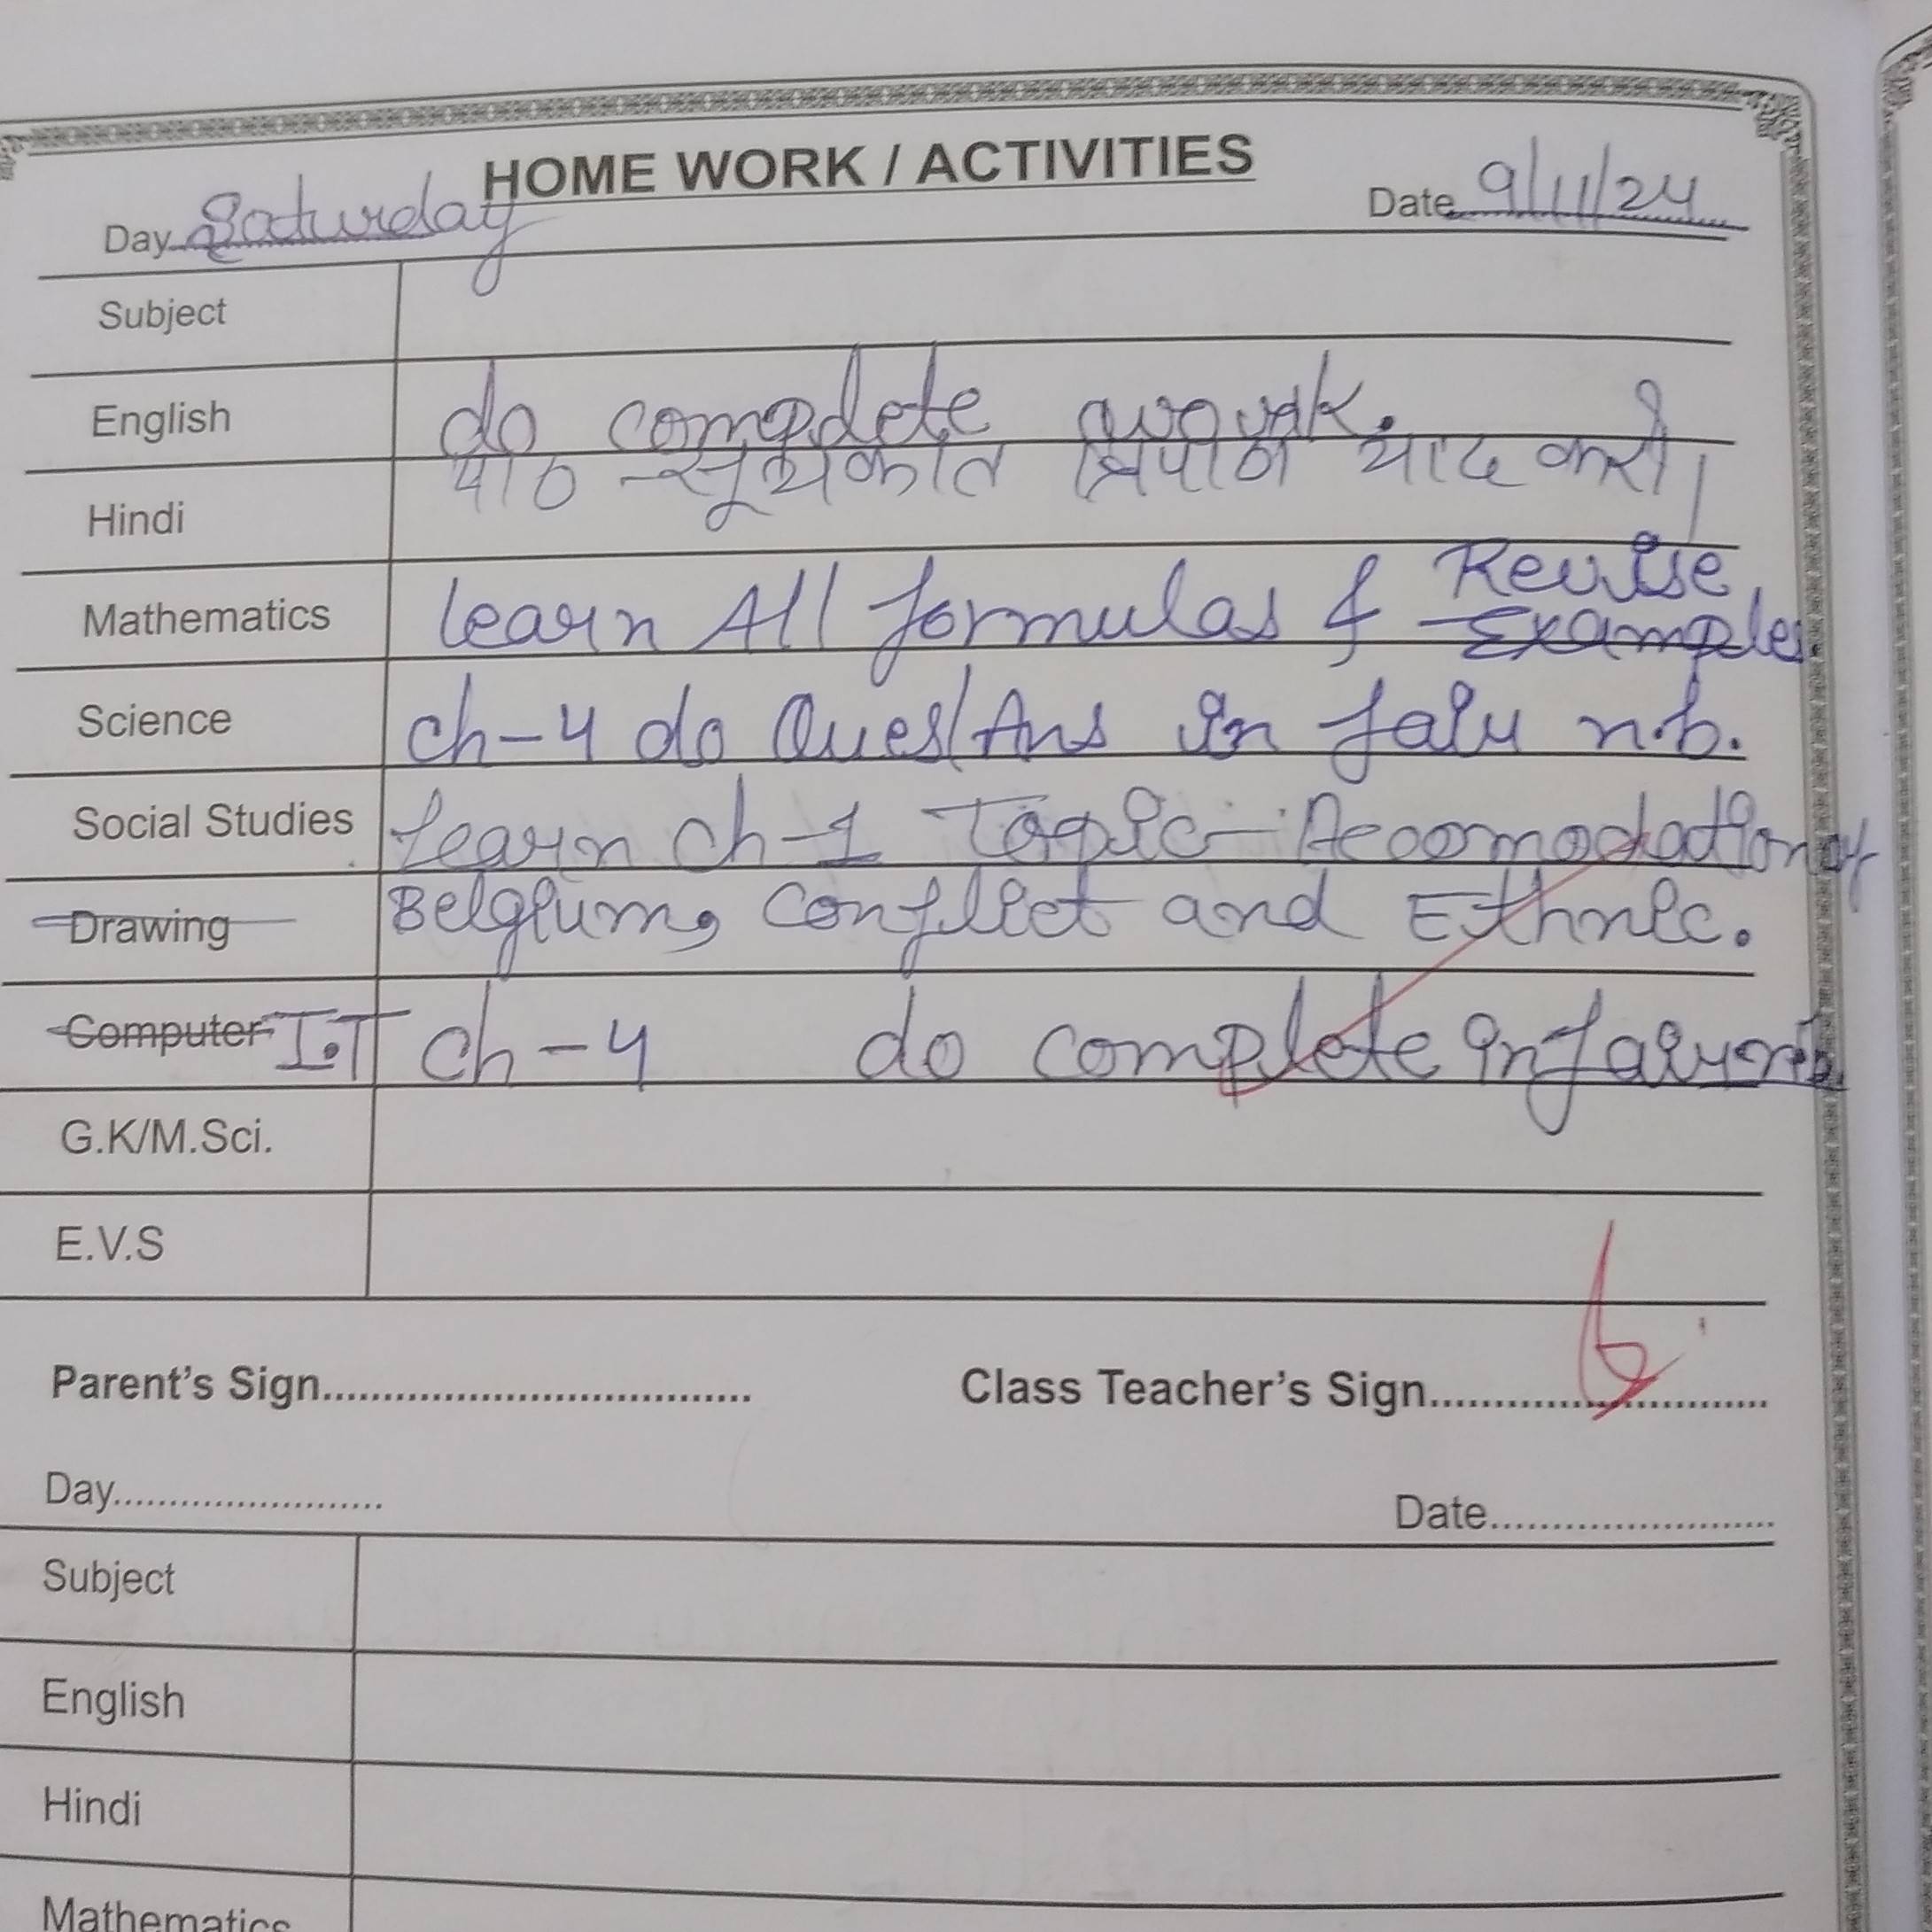 HOME WORK / ACTIVITIES
Day Saturday Date 9/11/24
Subject
English do complete work.
Hindi पाठ -सूर्यकांत त्रिपाठी याद करो।
Mathematics learn All formulas & Revise Example.
Science ch-4 do Ques/Ans in fair n.b.
Social Studies Learn ch-1 Topic - Accomodation of
Drawing Belgium, Conflict and Ethnic.
Computer I.T ch-4 do complete in fair n.b.
G.K/M.Sci.
E.V.S
Parent's Sign.................................... Class Teacher's Sign....................................
Day........................ Date........................
Subject
English
Hindi
Mathematics